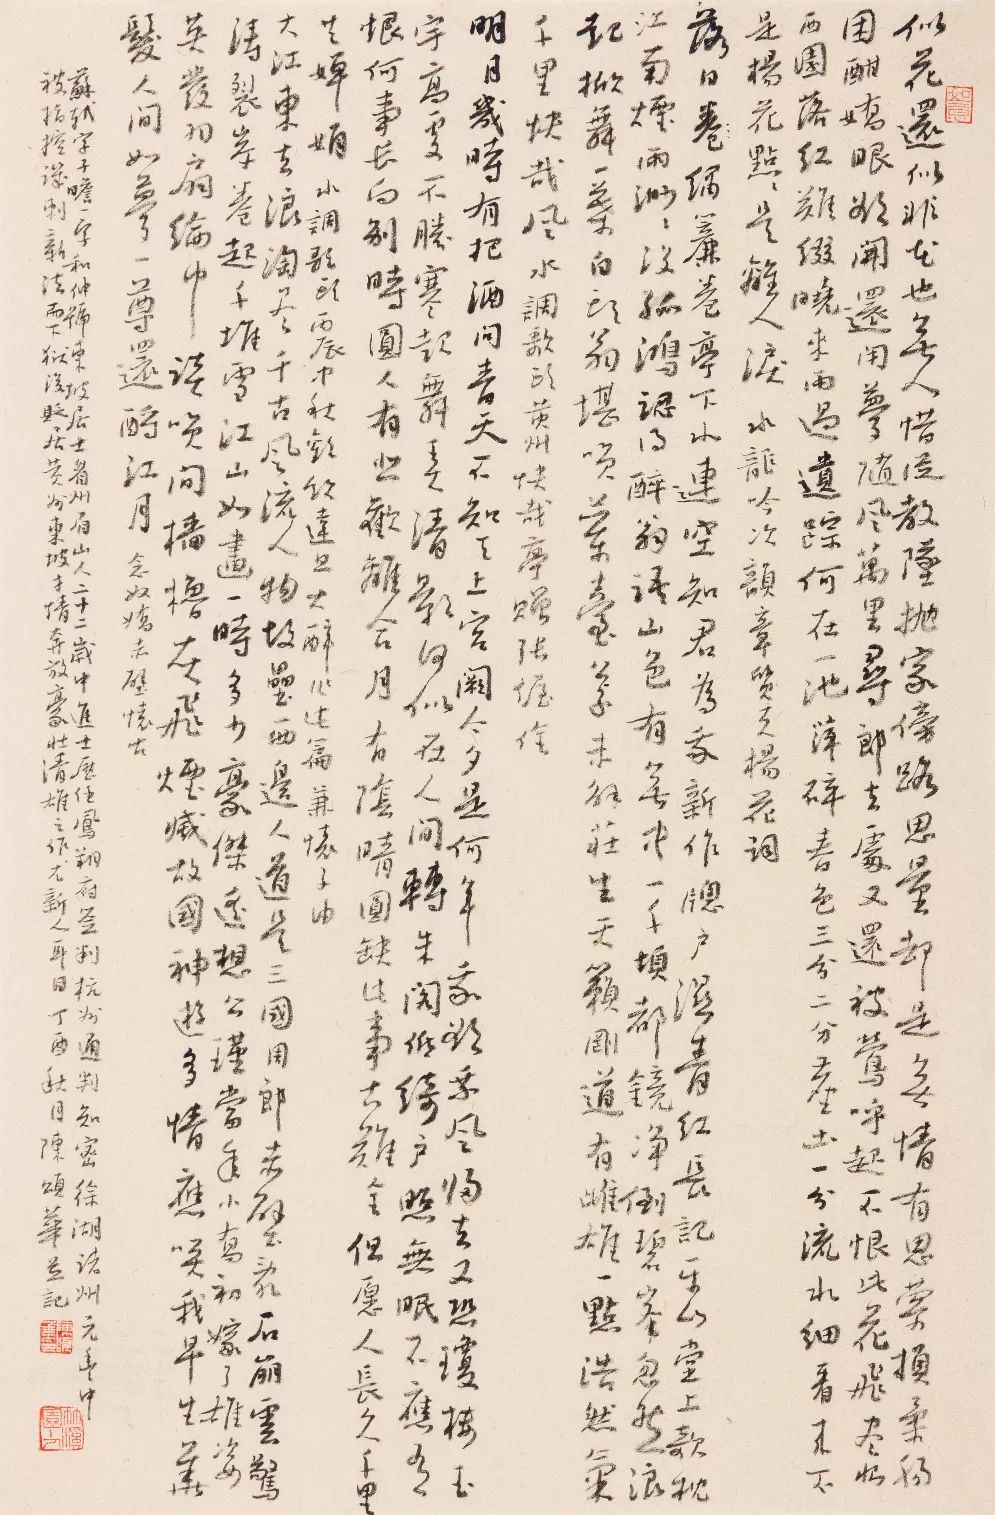 似花還似非花也無人惜從教墜拋家傍路思量却是無情有思縈損柔腸
困酣嬌眼欲開還閉夢隨風萬里尋郎去處又還被鶯呼起不恨此花飛盡恨
西園落紅難綴曉來雨過遺踪何在一池萍碎春色三分二分塵土一分流水細看來不
是楊花點點是離人淚 水龍吟次韻章質夫楊花詞
落日繡簾卷亭下水連空知君為我新作窗户濕青紅長記平山堂上欹枕
江南煙雨渺渺沒孤鴻認得醉翁語山色有無中一千頃都鏡净倒碧峯忽然浪
起掀舞一葉白頭翁堪笑蘭臺公子未解莊生天籟剛道有雌雄一點浩然氣
千里快哉風 水調歌頭黄州快哉亭贈張偓佺
明月幾時有把酒問青天不知天上宮闕今夕是何年我欲乘風歸去又恐瓊樓玉
宇高處不勝寒起舞弄清影何似在人間轉朱閣低綺户照無眠不應有
恨何事長向别時圓人有悲歡離合月有陰晴圓缺此事古難全但愿人長久千里
共嬋娟 水調歌頭丙辰中秋歡飲達旦大醉作此篇兼懷子由
大江東去浪淘盡千古風流人物故壘西邊人道是三國周郎赤壁亂石崩雲驚
濤裂岸卷起千堆雪江山如畫一時多少豪傑遥想公瑾當年小喬初嫁了雄姿
英發羽扇綸巾談笑間檣櫓灰飛煙滅故國神遊多情應笑我早生華
髮人間如夢一尊還酹江月 念奴嬌赤壁懷古
蘇軾字子瞻一字和仲號東坡居士眉州眉山人二十二歲中進士歷任鳳翔府簽判杭州通判知密徐湖諸州元豐中
被指控謗刺新法而下獄後貶居黄州東坡才情奔放豪壯清雄之作尤新人耳目丁酉秋月陳頌華並記